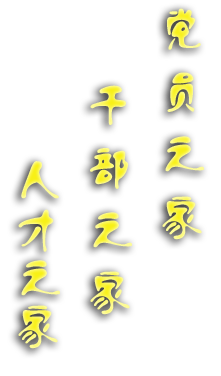 党员之家
干部之家
人才之家